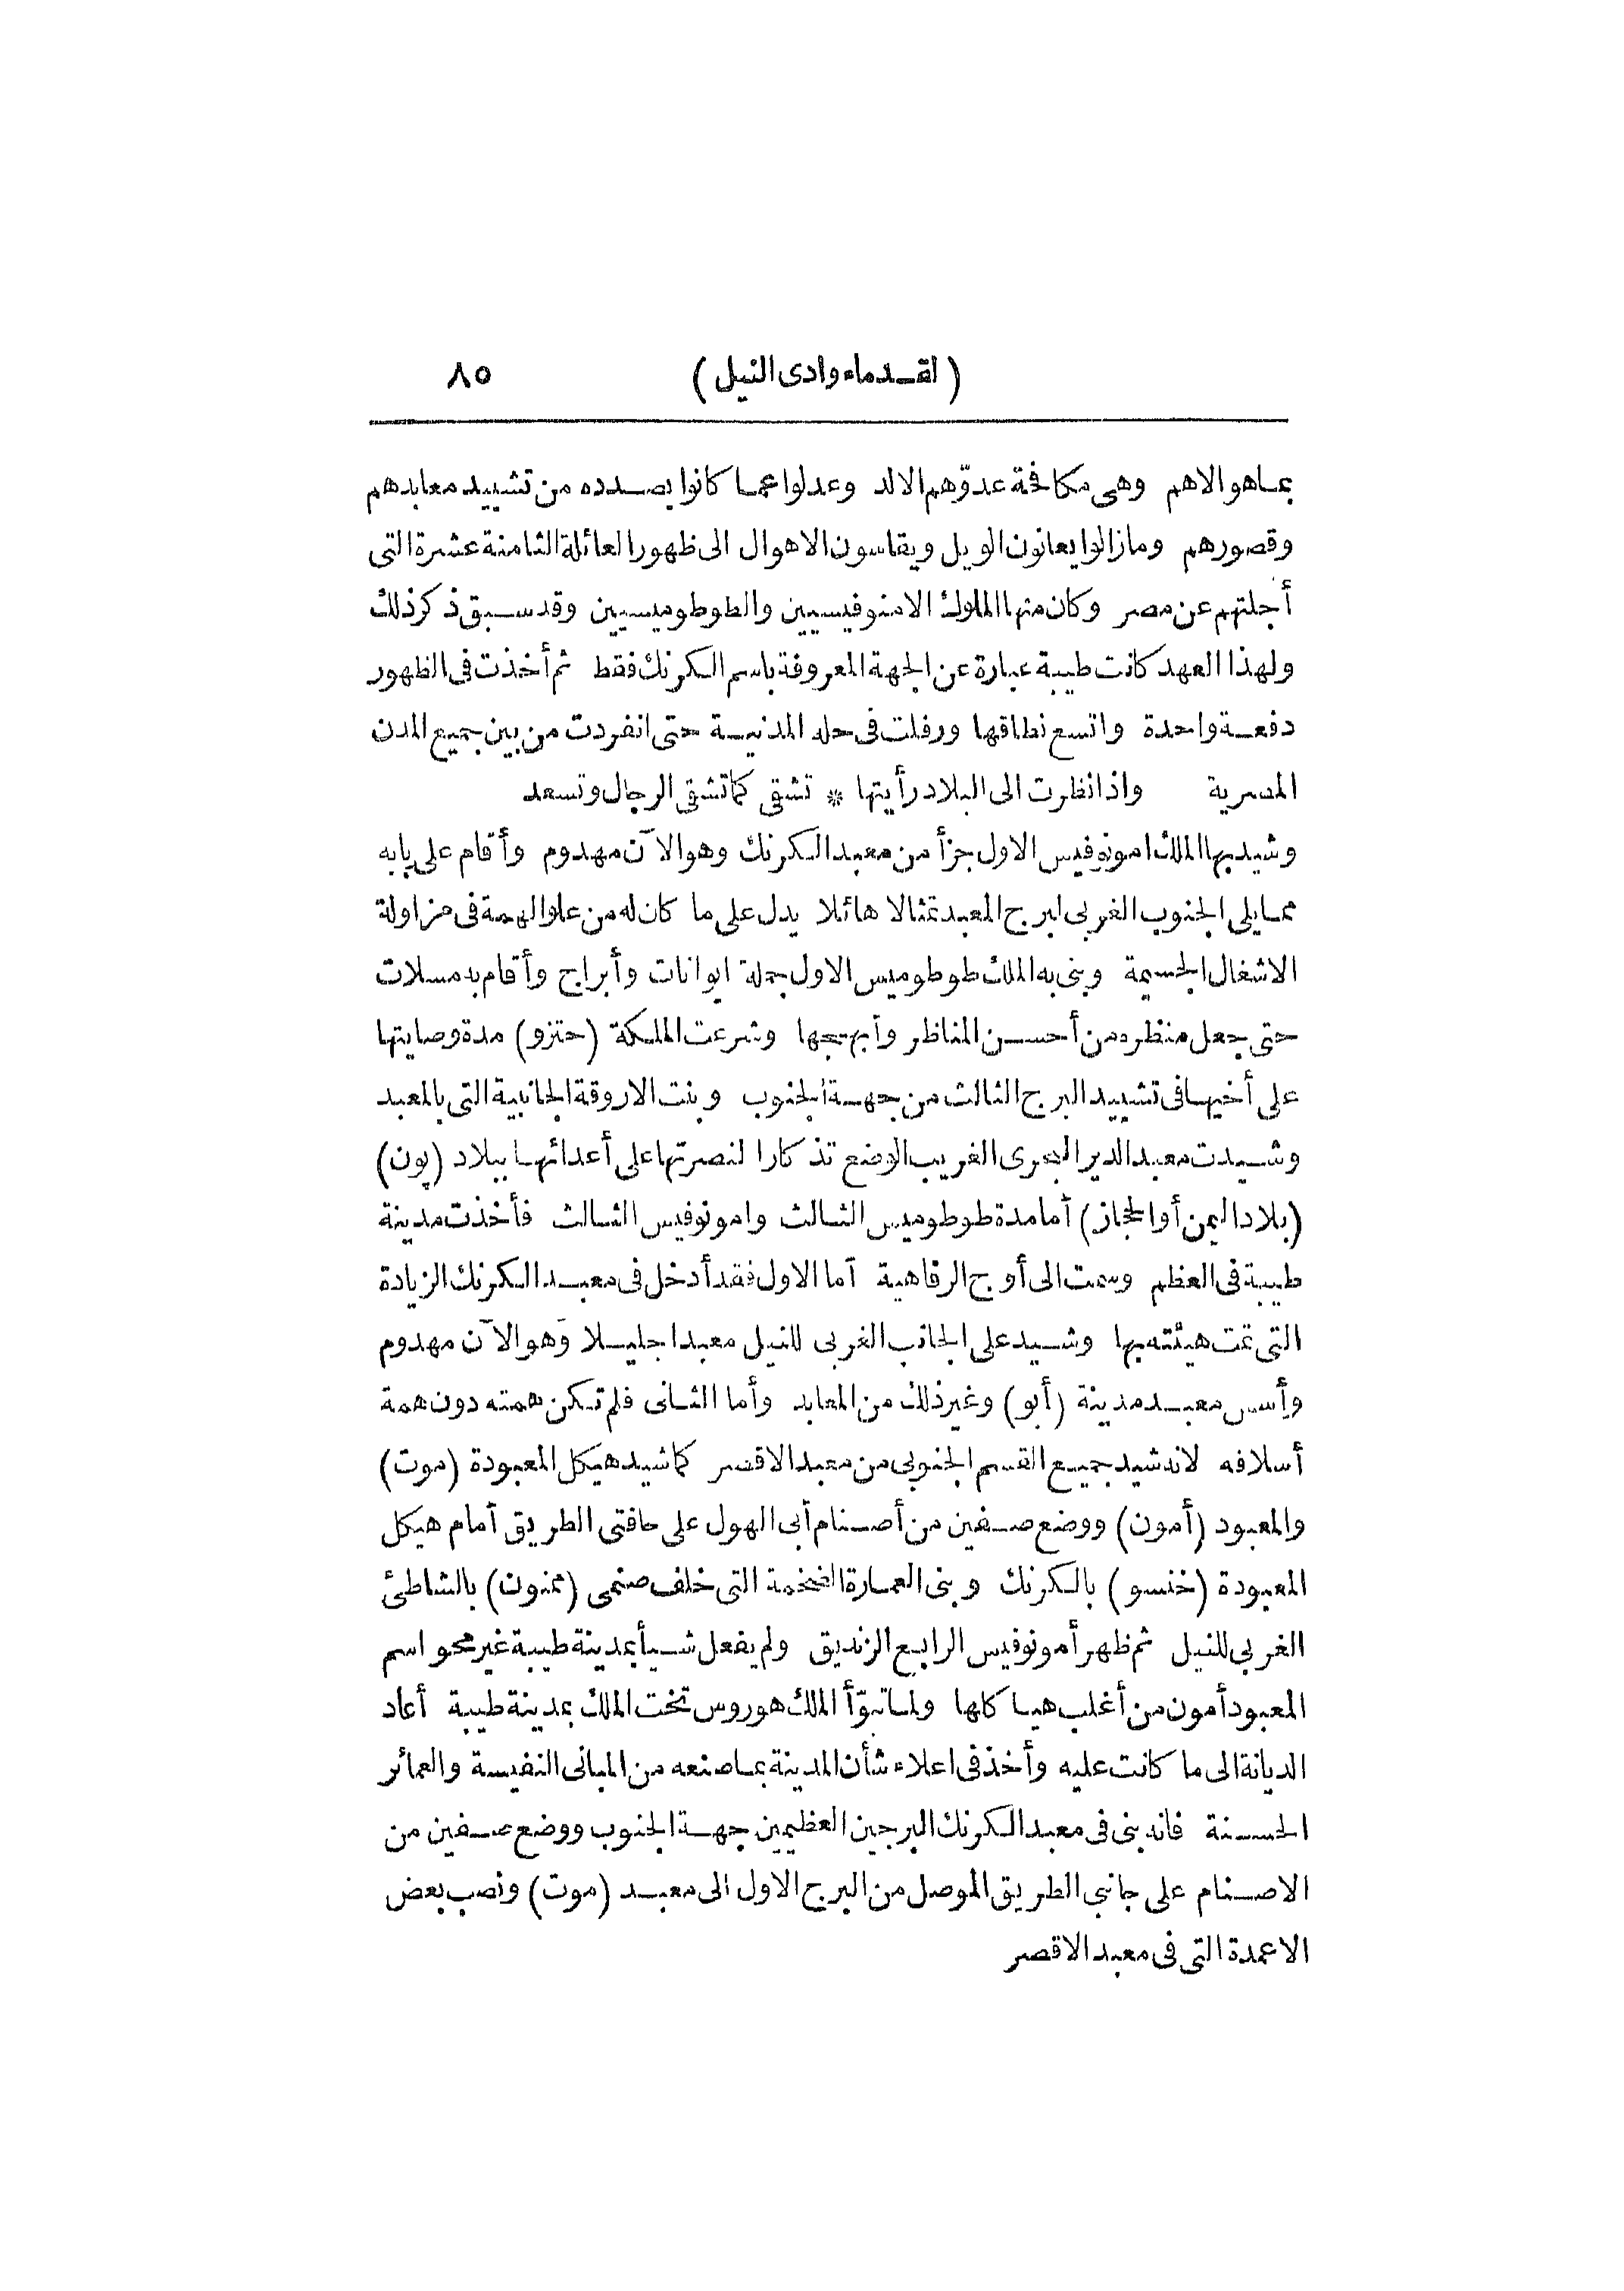 (لقدماء وادى النيل) ٨٥
بماهو الاهم وهى مكافحة عدوّهم الالد وعدلوا عما كانوا بصدده من تشييد معابدهم
وقصورهم ومازالوا يعانون الويل ويقاسون الاهوال الى ظهور العائلة الثامنة عشرة التى
أجلتهم عن مصر وكان منها الملوك الامنوفيسيين والطوطوميسيين وقد سبق ذكر ذلك
ولهذا العهد كانت طيبة عبارة عن الجهة المعروفة باسم الكرنك فقط ثم أخذت فى الظهور
دفعة واحدة واتسع نطاقها ورفلت فى حلل المدنية حتى انفردت من بين جميع المدن
المصرية واذا نظرت الى البلاد رأيتها * تشقى كما تشقى الرجال وتسعد
وشيد بها الملك امونوفيس الاول جزأ من معبد الكرنك وهو الآن مهدوم وأقام على بابه
مما يلى الجنوب الغربى لبرج المعبد تمثالا هائلا يدل على ما كان له من علو الهمة فى مزاولة
الاشغال الجسيمة وبنى به الملك طوطوميس الاول جملة ايوانات وأبراج وأقام به مسلات
حتى جعل منظره من أحسن المناظر وأبهجها وشرعت الملكة (حتزو) مدة وصايتها
على أخيها فى تشييد البرج الثالث من جهة الجنوب وبنت الاروقة الجانبية التى بالمعبد
وشيدت معبد الدير البحرى الغريب الوضع تذكارا لنصرتها على أعدائها ببلاد (پون)
(بلاد اليمن أو الحجاز) أما مدة طوطوميس الثالث وامونوفيس الثالث فأخذت مدينة
طيبة فى العظم وسمت الى أوج الرفاهية أما الاول فقد أدخل فى معبد الكرنك الزيادة
التى تمت هيئته بها وشيد على الجانب الغربى للنيل معبدا جليلا وهو الآن مهدوم
وأسس معبد مدينة (أبو) وغير ذلك من المعابد وأما الثانى فلم تكن همته دون همة
أسلافه لانه شيد جميع القسم الجنوبى من معبد الاقصر كما شيد هيكل المعبودة (موت)
والمعبود (أمون) ووضع صفين من أصنام أبى الهول على حافتى الطريق أمام هيكل
المعبودة (خنسو) بالكرنك وبنى العمارة الضخمة التى خلف صنمى (ممنون) بالشاطئ
الغربى للنيل ثم ظهر أمونوفيس الرابع الزنديق ولم يفعل شيأ بمدينة طيبة غير محو اسم
المعبود أمون من أغلب هياكلها ولما تبوّأ الملك هوروس تخت الملك بمدينة طيبة أعاد
الديانة الى ما كانت عليه وأخذ فى اعلاء شأن المدينة بما صنعه من المبانى النفيسة والعمائر
الحسنة فانه بنى فى معبد الكرنك البرجين العظيمين جهة الجنوب ووضع صفين من
الاصنام على جانبى الطريق الموصل من البرج الاول الى معبد (موت) ونصب بعض
الاعمدة التى فى معبد الاقصر